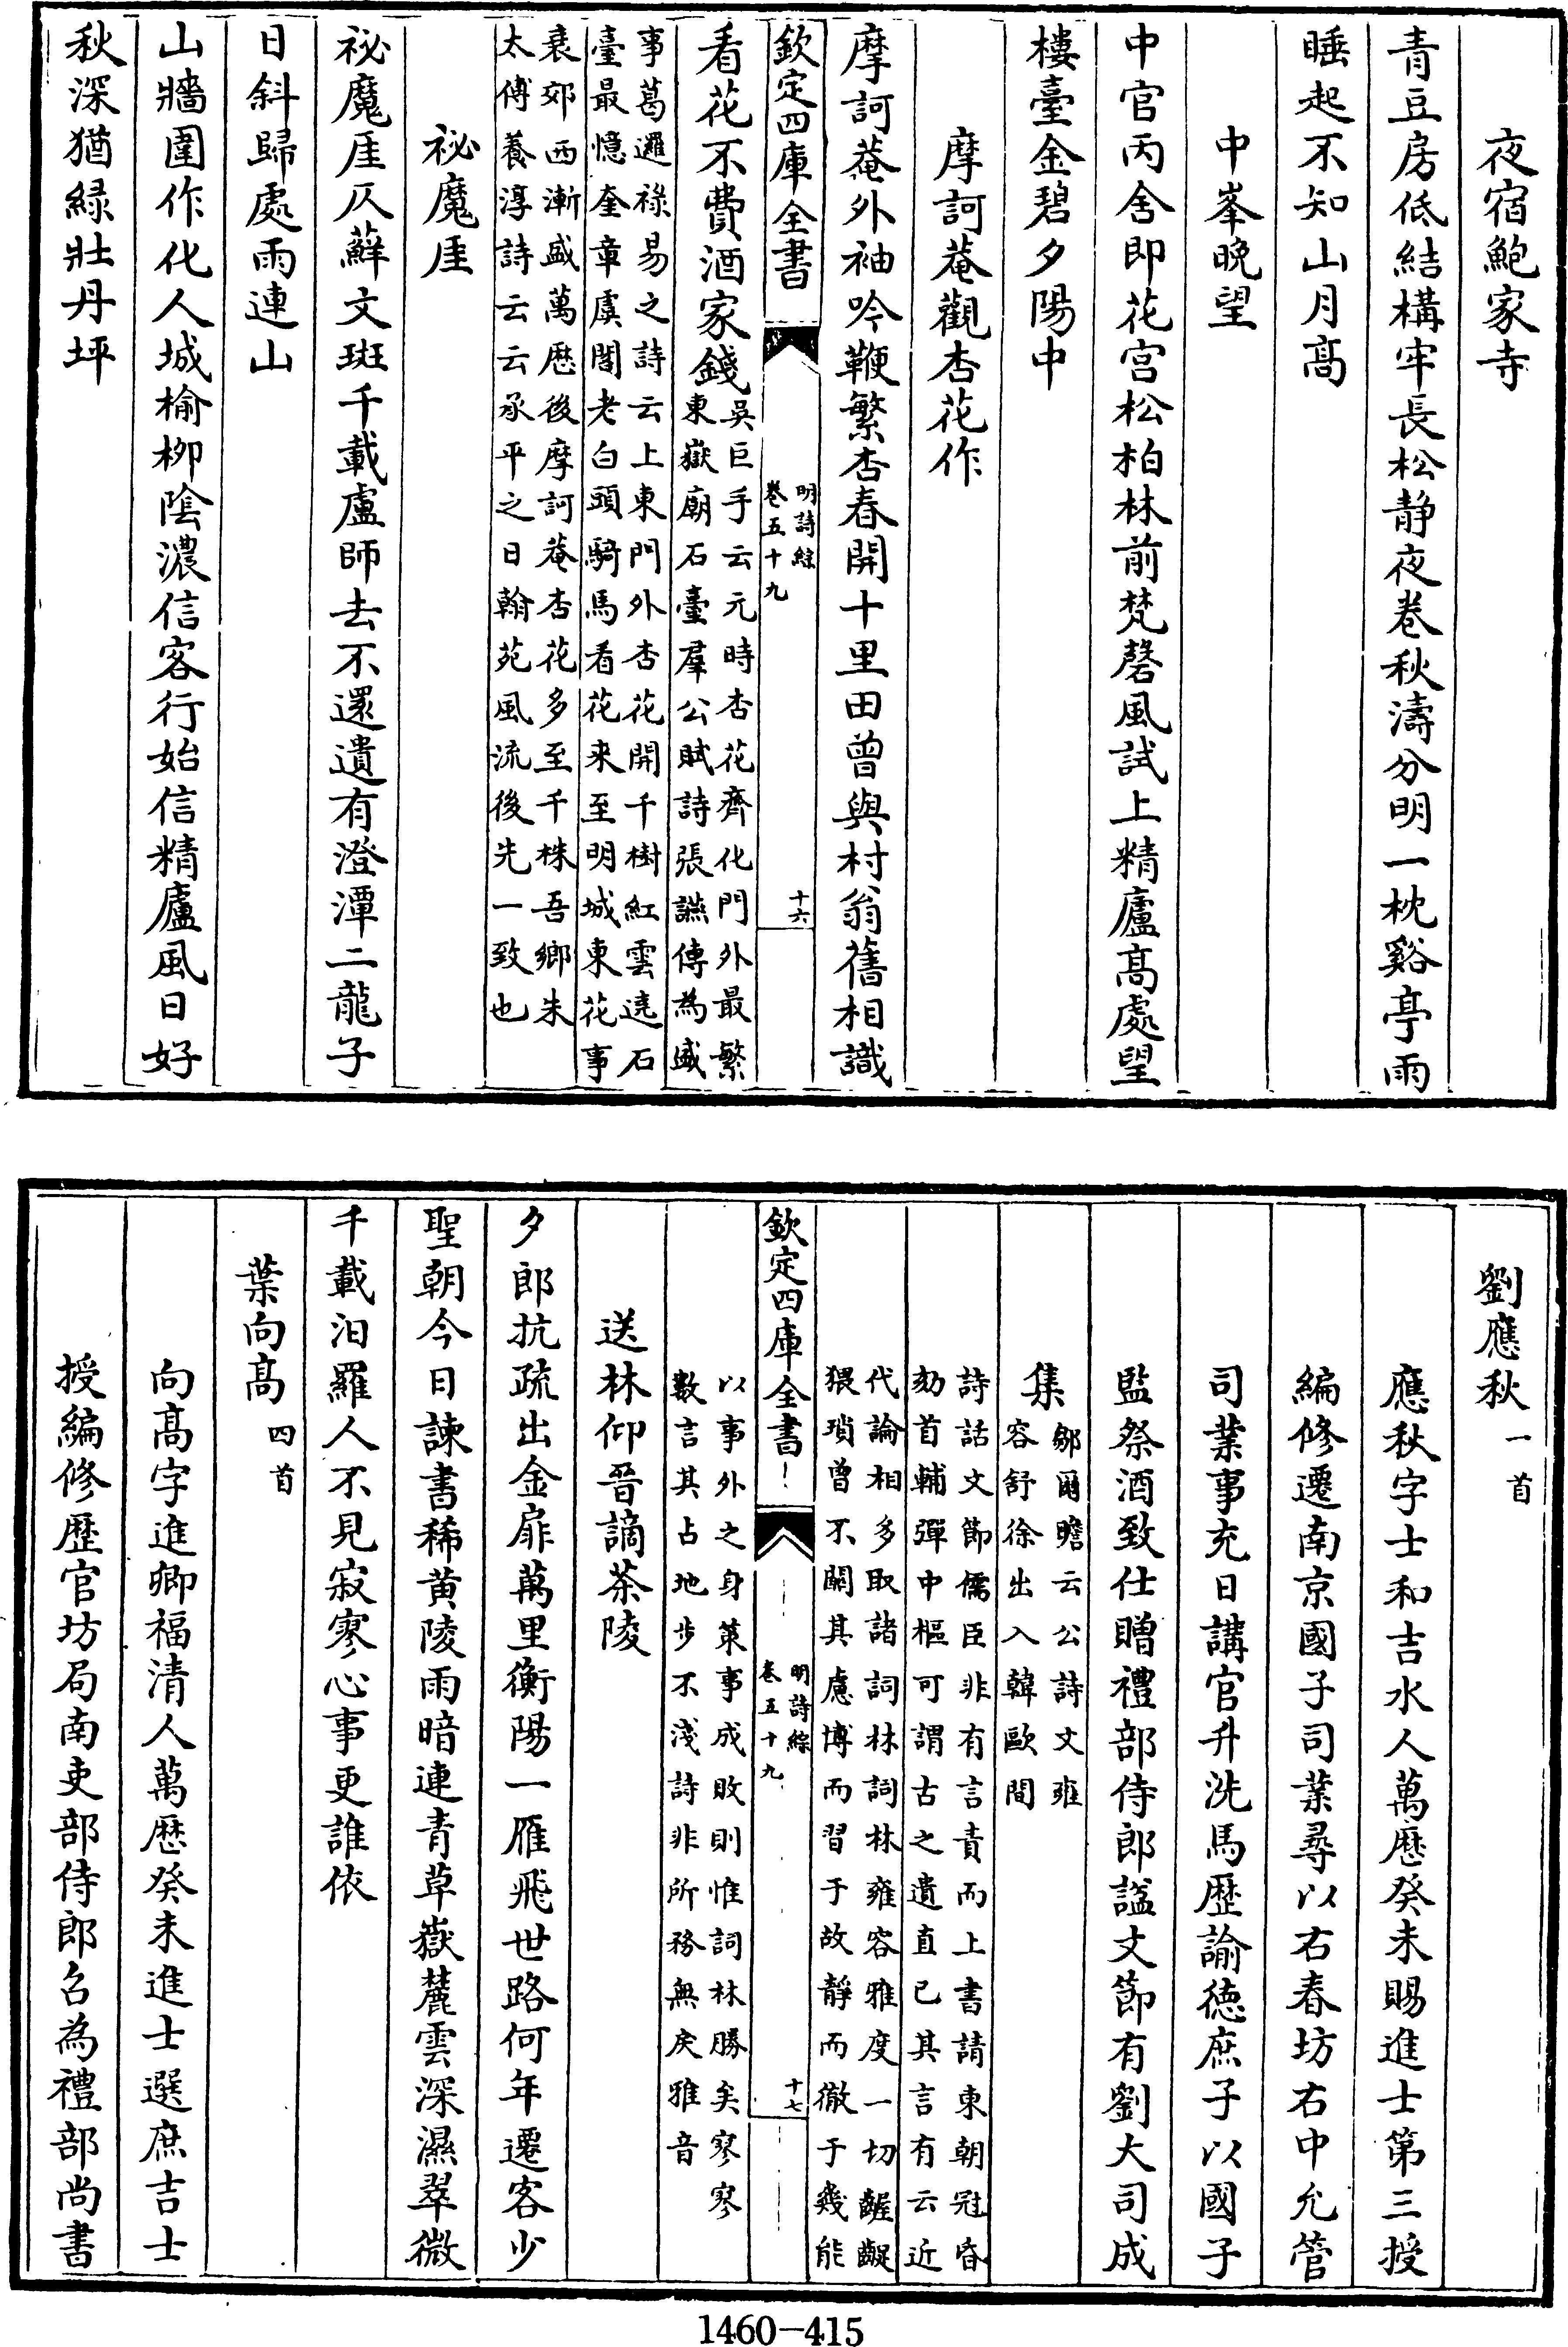 夜宿鮑家寺
青豆房低結構牢長松静夜巻秋濤分明一枕谿亭雨
睡起不知山月髙
中峯晚望
中官丙舍即花宫松柏林前梵磬風試上精廬髙處望
樓臺金碧夕陽中
摩訶菴觀杏花作
摩訶菴外袖吟鞭繁杏春開十里田曾與村翁舊相識
欽定四庫全書
明詩綜
卷五十九
十六
看花不費酒家錢
吳巨手云元時杏花齊化門外最繁
東嶽廟石臺羣公賦詩張讌傳為盛
事葛邏祿易之詩云上東門外杏花開千樹紅雲遶石
臺最憶奎章虞閣老白頭騎馬看花来至明城東花事
衰郊西漸盛萬歴後摩訶菴杏花多至千株吾鄉朱
太傅養淳詩云云承平之日翰苑風流後先一致也
祕魔厓
祕魔厓仄蘚文斑千載盧師去不還遺有澄潭二龍子
日斜歸處雨連山
山牆圍作化人城榆栁陰濃信客行始信精廬風日好
秋深猶緑牡丹坪
劉應秋一首
應秋字士和吉水人萬歴癸未賜進士第三授
編修遷南京國子司業尋以右春坊右中允管
司業事充日講官升洗馬歴諭徳庶子以國子
監祭酒致仕贈禮部侍郎諡文節有劉大司成
集
鄒爾瞻云公詩文雍
容舒徐出入韓歐間
詩話文節儒臣非有言責而上書請東朝冠昏
劾首輔彈中樞可謂古之遺直已其言有云近
代論相多取諸詞林詞林雍容雅度一切齷齪
猥瑣曾不闗其慮博而習于故靜而徹于幾能
欽定四庫全書
明詩綜
卷五十九
十七
以事外之身策事成敗則惟詞林勝矣寥寥
數言其占地步不淺詩非所務無戾雅音
送林仰晉謫茶陵
夕郎抗疏出金扉萬里衡陽一雁飛世路何年遷客少
聖朝今日諫書稀黄陵雨暗連青草嶽麓雲深濕翠微
千載汨羅人不見寂寥心事更誰依
葉向髙四首
向髙字進卿福清人萬歴癸未進士選庶吉士
授編修歴官坊局南吏部侍郎召為禮部尚書
1460-415